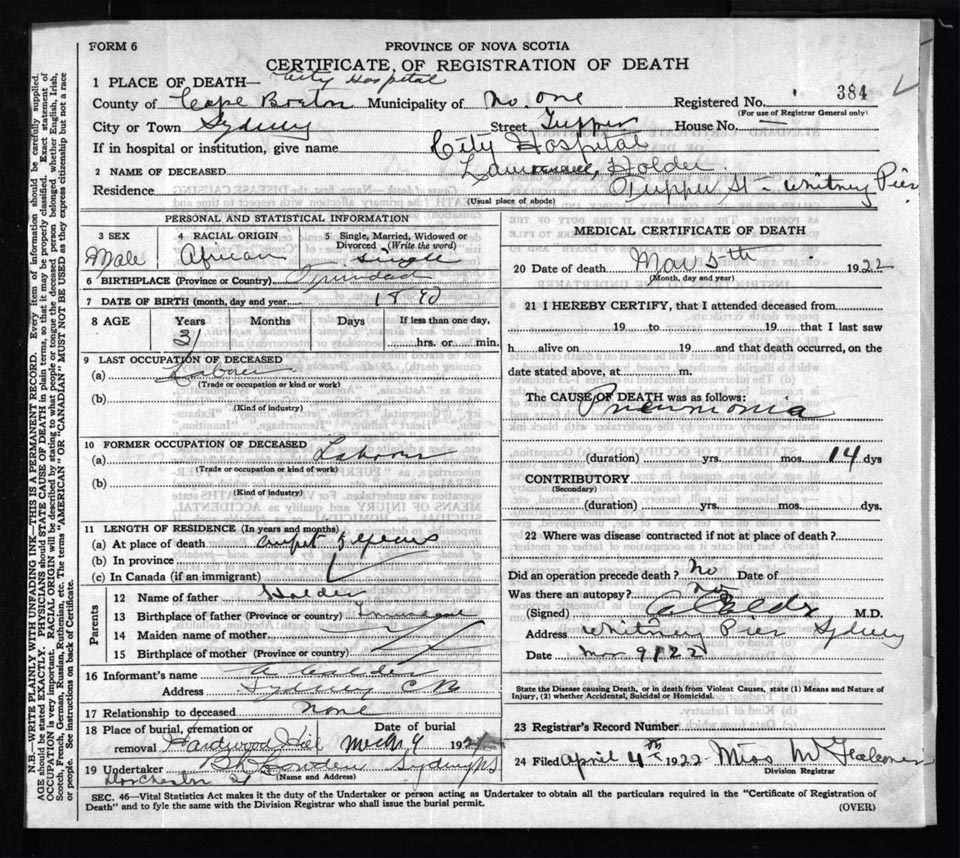 FORM 6
PROVINCE OF NOVA SCOTIA
CERTIFICATE OF REGISTRATION OF DEATH
1 PLACE OF DEATH— City Hospital
County of Cape Breton Municipality of No. One Registered No. 384
(For use of Registrar General only)
City or Town Sydney Street Tupper House No. —
If in hospital or institution, give name City Hospital
2 NAME OF DECEASED Lawrence, Holder
Residence Tupper St - Whitney Pier
(Usual place of abode)
PERSONAL AND STATISTICAL INFORMATION
3 SEX 4 RACIAL ORIGIN 5 Single, Married, Widowed or Divorced (Write the word)
Male African Single
6 BIRTHPLACE (Province or Country) Trinidad
7 DATE OF BIRTH (month, day and year)
8 AGE Years Months Days If less than one day,
hrs. or min.
9 LAST OCCUPATION OF DECEASED
(a) Laborer
(Trade or occupation or kind or work)
(b)
(Kind of industry)
10 FORMER OCCUPATION OF DECEASED
(a) Laborer
(Trade or occupation or kind of work)
(b)
(Kind of industry)
11 LENGTH OF RESIDENCE (In years and months)
(a) At place of death 5 years
(b) In province
(c) In Canada (if an immigrant)
Parents
12 Name of father Holder
13 Birthplace of father (Province or country) Trinidad
14 Maiden name of mother
15 Birthplace of mother (Province or country)
16 Informant's name
Address Sydney C B
17 Relationship to deceased None
18 Place of burial, cremation or removal Hardwood Hill Date of burial March 9 192
19 Undertaker Sydney NS
Dorchester St (Name and Address)
MEDICAL CERTIFICATE OF DEATH
20 Date of death Mar 5th 1922
(Month, day and year)
21 I HEREBY CERTIFY, that I attended deceased from
19 to 19 that I last saw
h alive on 19 and that death occurred, on
date stated above, at m.
The CAUSE OF DEATH was as follows:
Pneumonia
(duration) yrs. mos. 14 dys
CONTRIBUTORY
(Secondary)
(duration) yrs. mos. dys.
22 Where was disease contracted if not at place of death?
Did an operation precede death? No Date of
Was there an autopsy? No
(Signed) M.D.
Address Whitney Pier Sydney
Date Mar 9/22
State the Disease causing Death, or in death from Violent Causes, state (1) Means and Nature of Injury, (2) whether Accidental, Suicidal or Homicidal.
23 Registrar's Record Number
24 Filed April 4th 1922 Miss M Falconer
Division Registrar
SEC. 46—Vital Statistics Act makes it the duty of the Undertaker or person acting as Undertaker to obtain all the particulars required in the "Certificate of Registration of
Death" and to fyle the same with the Division Registrar who shall issue the burial permit.
(OVER)
N.B.—WRITE PLAINLY WITH UNFADING INK—THIS IS A PERMANENT RECORD. Every item of information should be carefully supplied.
AGE should be stated EXACTLY. PHYSICIANS should STATE CAUSE OF DEATH in plain terms, so that it may be properly classified. Exact statement of
OCCUPATION is very important. RACIAL ORIGIN will be described by stating to what people or tongue the deceased person belonged whether English, Irish,
Scotch, French, German, Russian, Ruthenian, etc. The terms "AMERICAN" OR "CANADIAN" MUST NOT BE USED as they express citizenship but not a race
or people. See instructions on back of Certificate.